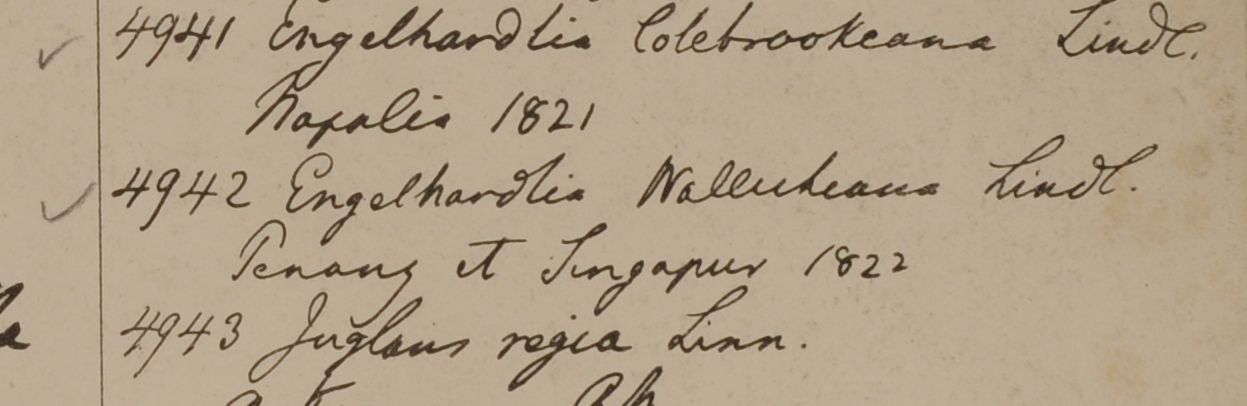 4941 Engelhardtia Colebrookeana Lindl.
Napalia 1821
4942 Engelhardtia Wallicheana Lindl.
Penang et Singapur 1822
4943 Juglans regia Linn.